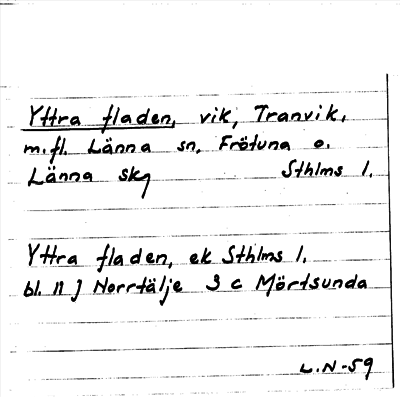 Yttra fladen, vik, Tranvik,
m.fl. Länna sn, Frötuna o.
Länna skg Sthlms l.
Yttra fladen, ek Sthlms l.
bl. 11 J Norrtälje 3 c Mörtsunda
L.N-59